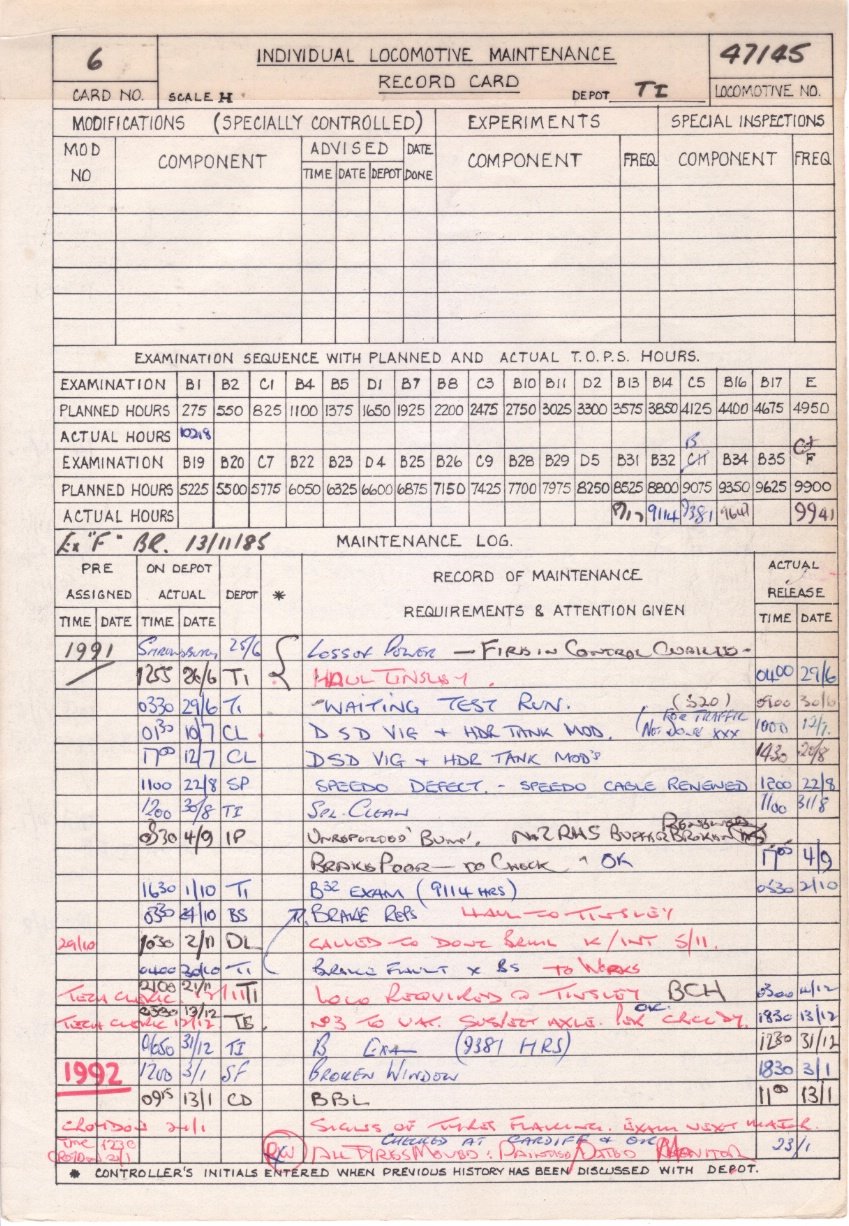 6 INDIVIDUAL LOCOMOTIVE MAINTENANCE 47145
CARD NO. SCALE H RECORD CARD DEPOT TI LOCOMOTIVE NO.
MODIFICATIONS (SPECIALLY CONTROLLED) EXPERIMENTS SPECIAL INSPECTIONS
MOD NO COMPONENT ADVISED DATE DONE COMPONENT FREQ COMPONENT FREQ
TIME DATE DEPOT
EXAMINATION SEQUENCE WITH PLANNED AND ACTUAL T.O.P.S. HOURS.
EXAMINATION B1 B2 C1 B4 B5 D1 B7 B8 C3 B10 B11 D2 B13 B14 C5 B16 B17 E
PLANNED HOURS 275 550 825 1100 1375 1650 1925 2200 2475 2750 3025 3300 3575 3850 4125 4400 4675 4950
ACTUAL HOURS 10218
EXAMINATION B19 B20 C7 B22 B23 D4 B25 B26 C9 B28 B29 D5 B31 B32 C11 B B34 B35 F
PLANNED HOURS 5225 5500 5775 6050 6325 6600 6875 7150 7425 7700 7975 8250 8525 8800 9075 9350 9625 9900
ACTUAL HOURS 9114 9381 9647 9941
Ex "F" BR. 13/11/85 MAINTENANCE LOG.
PRE ASSIGNED ON DEPOT ACTUAL DEPOT * RECORD OF MAINTENANCE REQUIREMENTS & ATTENTION GIVEN ACTUAL RELEASE
TIME DATE TIME DATE TIME DATE
1991 SHREWSBURY 25/6 LOSS OF POWER — FIRE IN CONTROL CUBICLE
1255 26/6 TI HAUL TINSLEY. 0400 29/6
0330 29/6 TI WAITING TEST RUN. (S20) 0900 30/6
0130 10/7 CL DSD VIG + HDR TANK MOD. (FOR TRAFFIC NOT DONE XXX 1000 12/7
1700 12/7 CL DSD VIG + HDR TANK MOD'S 1430 20/8
1100 22/8 SP SPEEDO DEFECT. - SPEEDO CABLE RENEWED 1200 22/8
1200 30/8 TI SPL. CLEAN 1100 31/8
0330 4/9 IP UNREPORTED 'BUMP'. No2 RHS BUFFER BROKEN
BRAKE POOR — TO CHECK OK 1700 4/9
1630 1/10 TI B32 EXAM (9114 HRS) 0530 2/10
0330 24/10 BS BRAKE REPS HAUL TO TINSLEY
29/10 1030 2/11 DL CALLED TO DONC BRML K/INT 5/11.
0400 30/10 TI BRAKE FAULT X BS TO WORKS
TECH CLERK 2100 21/11 TI LOCO REQUIRED @ TINSLEY BCH 0300 4/12
TECH CLERK 12/12 0330 13/12 TE. No3 TO UAT. SUSPECT AXLE. OK. 1830 13/12
0650 31/12 TI B EXAM (9381 HRS) 1230 31/12
1992 1200 3/1 SF BROKEN WINDOW 1830 3/1
0915 13/1 CD BBL 1100 13/1
CROYDON 21/1 SIGNS OF TYRES FLAKING. EXAM NEXT MAJOR.
CHECKED AT CARDIFF & OK 23/1
CROYDON 21/1 ALL TYRES MOVED: PAINTED/DATED MONITOR
* CONTROLLER'S INITIALS ENTERED WHEN PREVIOUS HISTORY HAS BEEN DISCUSSED WITH DEPOT.